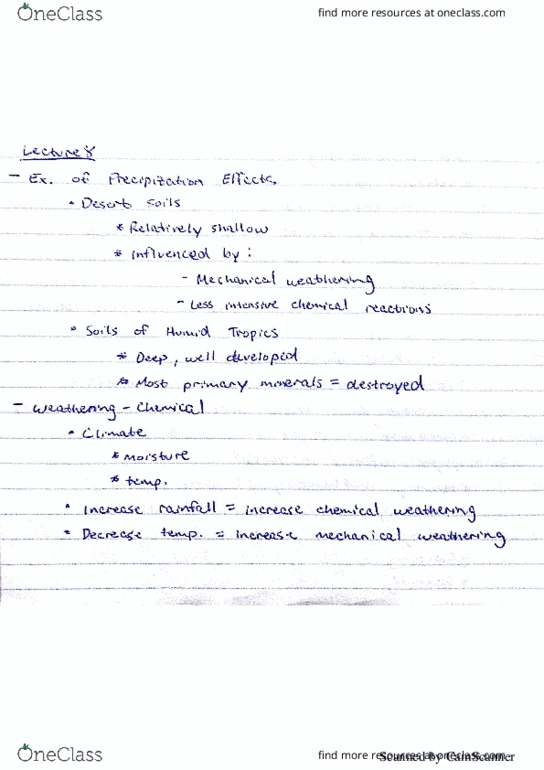 OneClass
find more resources at oneclass.com
Lecture 8
- Ex. of Precipitation Effects
• Desert Soils
* Relatively shallow
* Influenced by:
- Mechanical weathering
- Less intensive chemical reactions
• Soils of Humid Tropics
* Deep, well developed
* Most primary minerals = destroyed
- Weathering - Chemical
• Climate
* Moisture
* temp.
• Increase rainfall = increase chemical weathering
• Decrease temp. = increase mechanical weathering
OneClass
find more resources at oneclass.com
Scanned by CamScanner